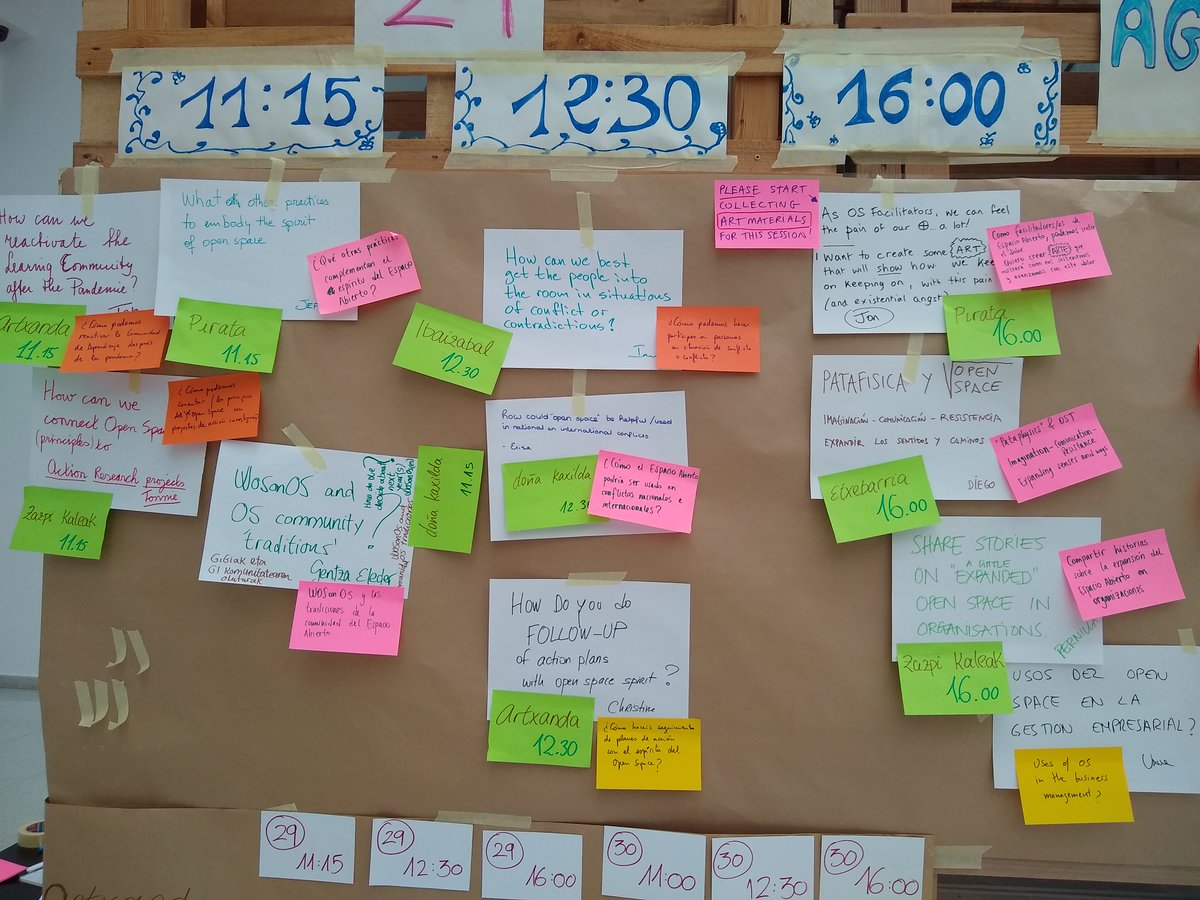 11:15
12:30
16:00
AG
How can we
reactivate the
Learning Community
after the Pandemie?
Artxanda
11.15
¿Cómo podemos
reactivar la Comunidad
de Aprendizaje después
de la pandemia?
What other practices
to embody the spirit
of open space
¿Qué otras prácticas
complementan el
espíritu del Espacio
Abierto?
Pirata
11.15
How can we
connect Open Spa
(principles) to
Action Research projects
¿Cómo podemos
conectar los principios
del open space con
proyectos de acción
Zazpi Kaleak
11.15
WosonOS and
OS community
'traditions'?
How do we
decide about
next
year(s)
WOSonOS?
GiGiak eta
GI Komunitatearen
ohiturak
Gentza Eleder
doña kaxilda
11.15
WOSonOS y las
tradiciones de la
comunidad del Espacio
Abierto
Ibaizabal
12.30
How can we best
get the people into
the room in situations
of conflict or
contradictions?
¿Cómo podemos hacer
participar a personas
en situación de conflicto
o conflicto?
How could 'open space' be helpful /used
in national en international conflicts
- Elisa
doña kaxilda
12.30
¿Cómo el Espacio Abierto
podría ser usado en
conflictos nacionales e
internacionales?
How Do you do
FOLLOW-UP
of action plans
with open space spirit?
Christine
Artxanda
12.30
¿Cómo hacéis seguimiento
de planes de acción
con el espíritu del
Open Space?
PLEASE START
COLLECTING
ART MATERIALS
FOR THIS SESSION!
As OS Facilitators, we can feel
the pain of our ⊕...a lot!
I Want to create some ART
that will show how we kee
on keeping on, with this pain
(and existential angst)
Jan
Como facilitadores/as de
Espacio Abierto, podemos sentir
el dolor
Quiero crear ARTE que
y avanzamos con este dolor
Pirata
16.00
PATAFISICA Y OPEN
SPACE
IMAGINACIÓN - COMUNICACIÓN - RESISTENCIA
EXPANDIR LOS SENTIDOS Y CAMINOS
DIEGO
"Pataphysics" & OST
Imagination-comunication-
Resistance
Expanding senses and ways
Etxebarria
16.00
SHARE STORIES
ON "A LITTLE
EXPANDED"
OPEN SPACE IN
ORGANISATIONS.
PERNILLA
Compartir historias
sobre la expansión del
Espacio Abierto en
organizaciones
Zazpi Kaleak
16.00
USOS DEL OPEN
SPACE EN LA
GESTION EMPRESARIAL?
Uses of OS
in the business
management?
29
11:15
29
12:30
29
16:00
30
11:00
30
12:30
30
16:00